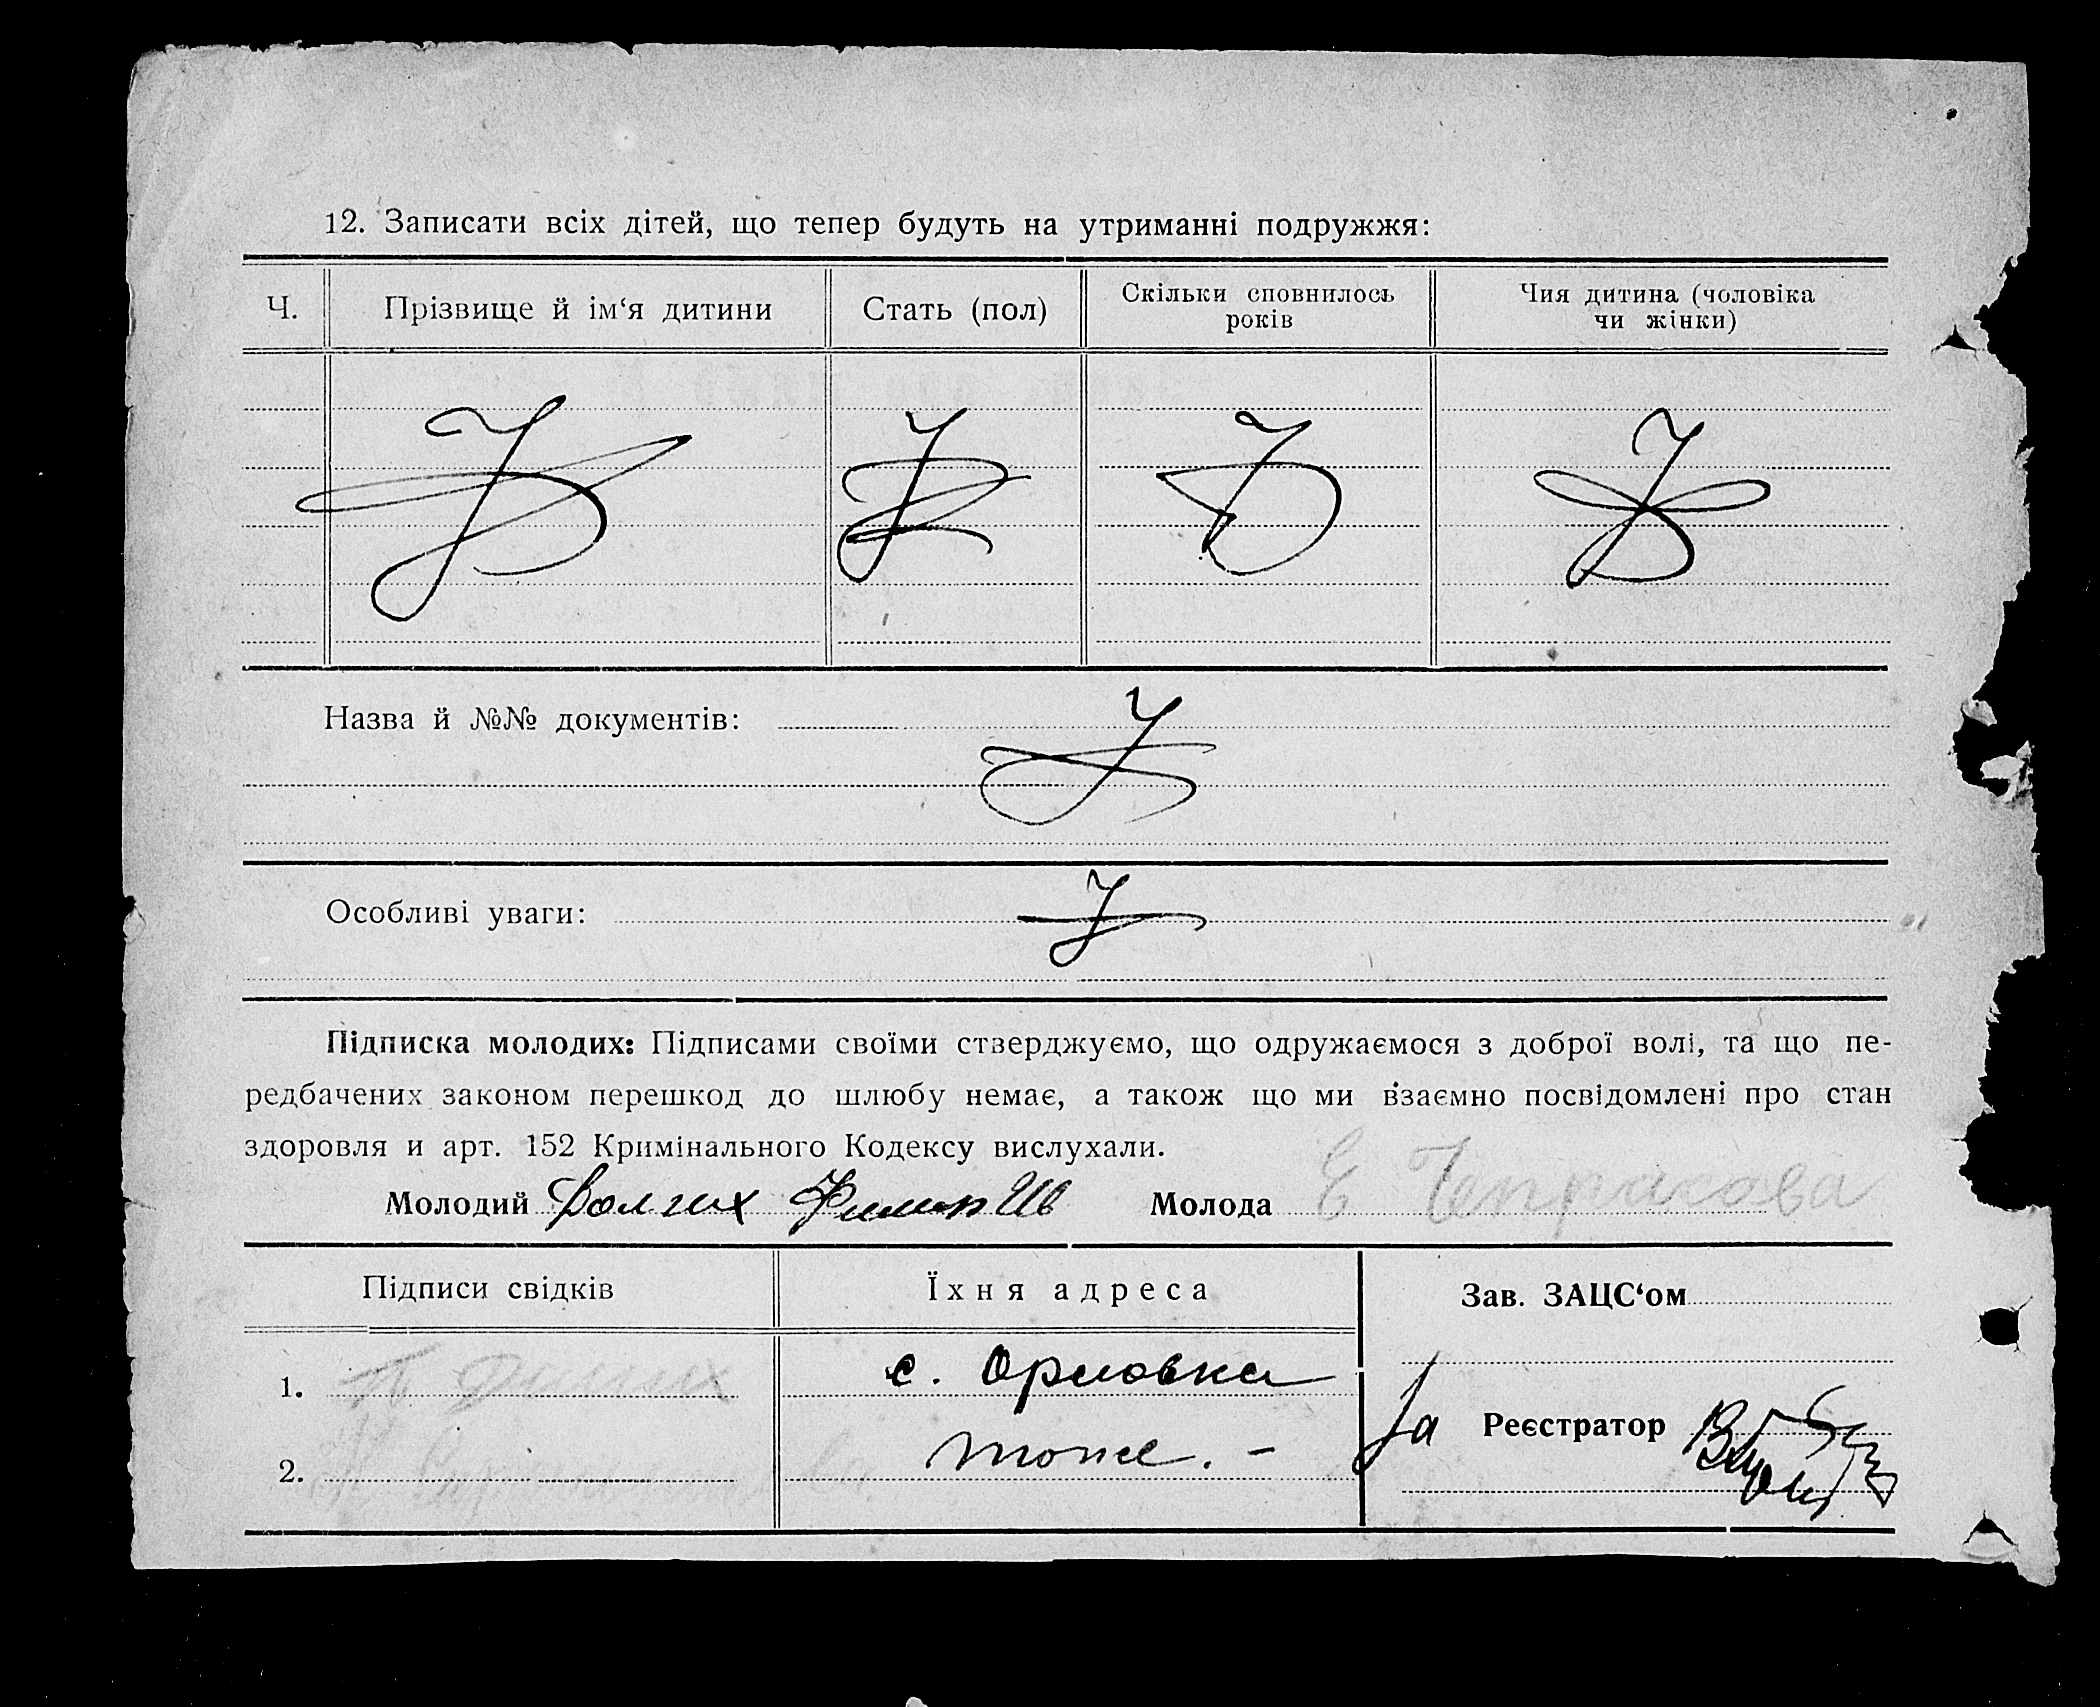 12. Записати всіх дітей, що тепер будуть на утриманні подружжя:
Ч.
Прізвище й ім‘я дитини
Стать (пол)
Скільки сповнилось
років
Чия дитина (чоловіка
чи жінки)
Назва й №№ документів:
Особливі уваги:
Підписка молодих: Підписами своїми стверджуємо, що одружаємося з доброї волі, та що пе-
редбачених законом перешкод до шлюбу немає, а також що ми взаємно посвідомлені про стан
здоровля и арт. 152 Кримінального Кодексу вислухали.
Молодий Долгих Филип Ив Молода Е Чепракова
Підписи свідків
Їхня адреса
Зав. ЗАЦС‘ом
1. Долгих
с. Орловка
2.
тоже. -
За Реєстратор